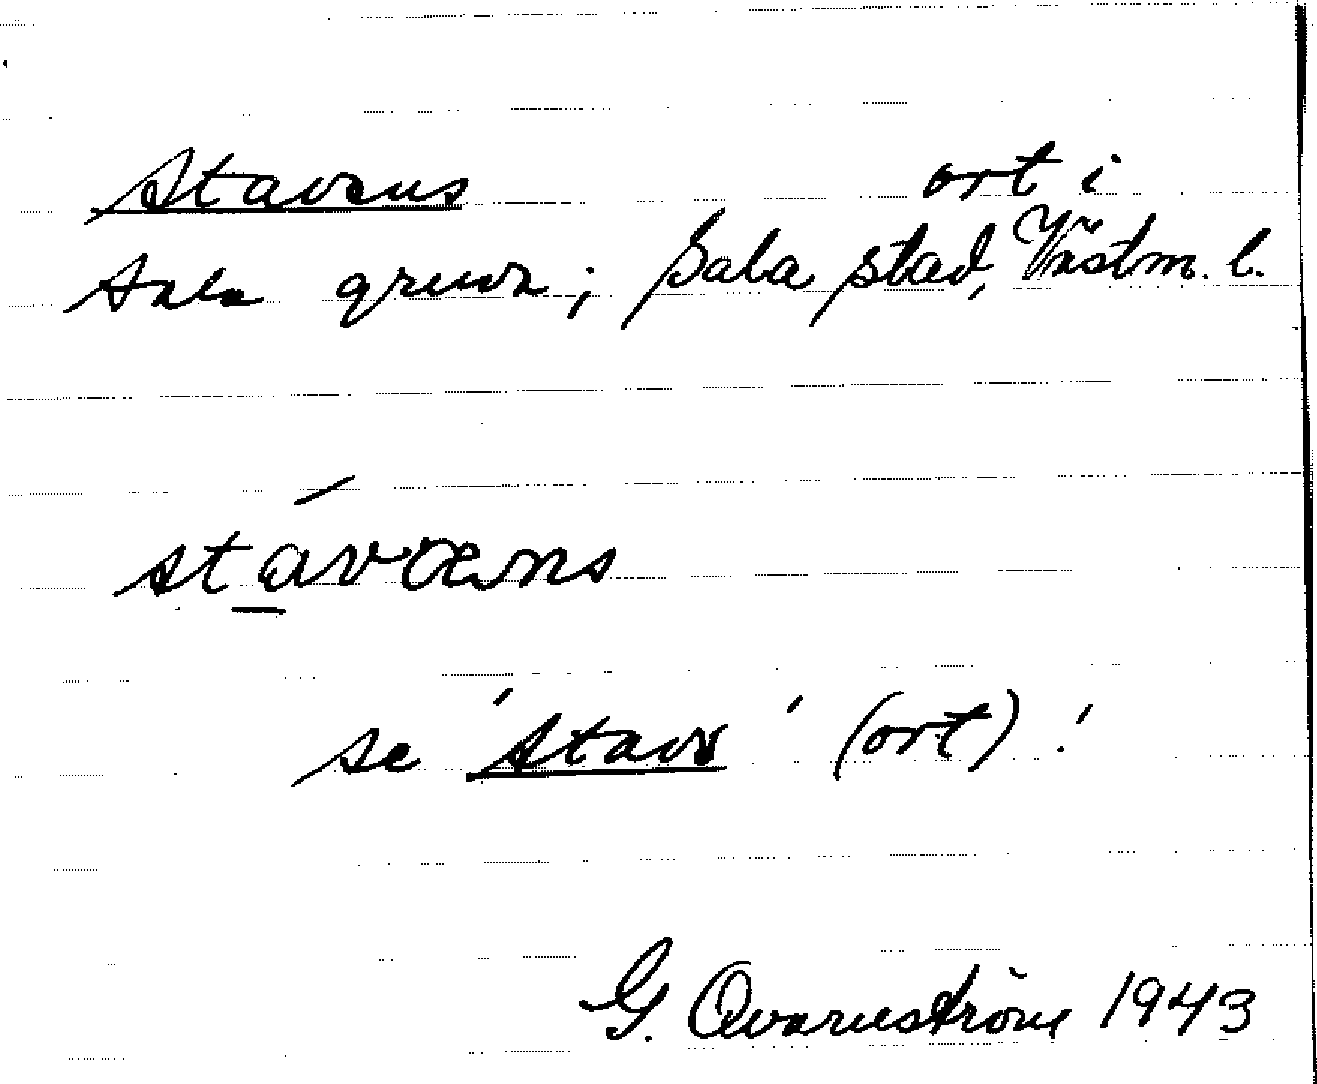 Stavens ort i
Sala gruva; Sala stad, Västm. l.
stávæns
se 'Stav' (ort)!
G. Qvarnström 1943